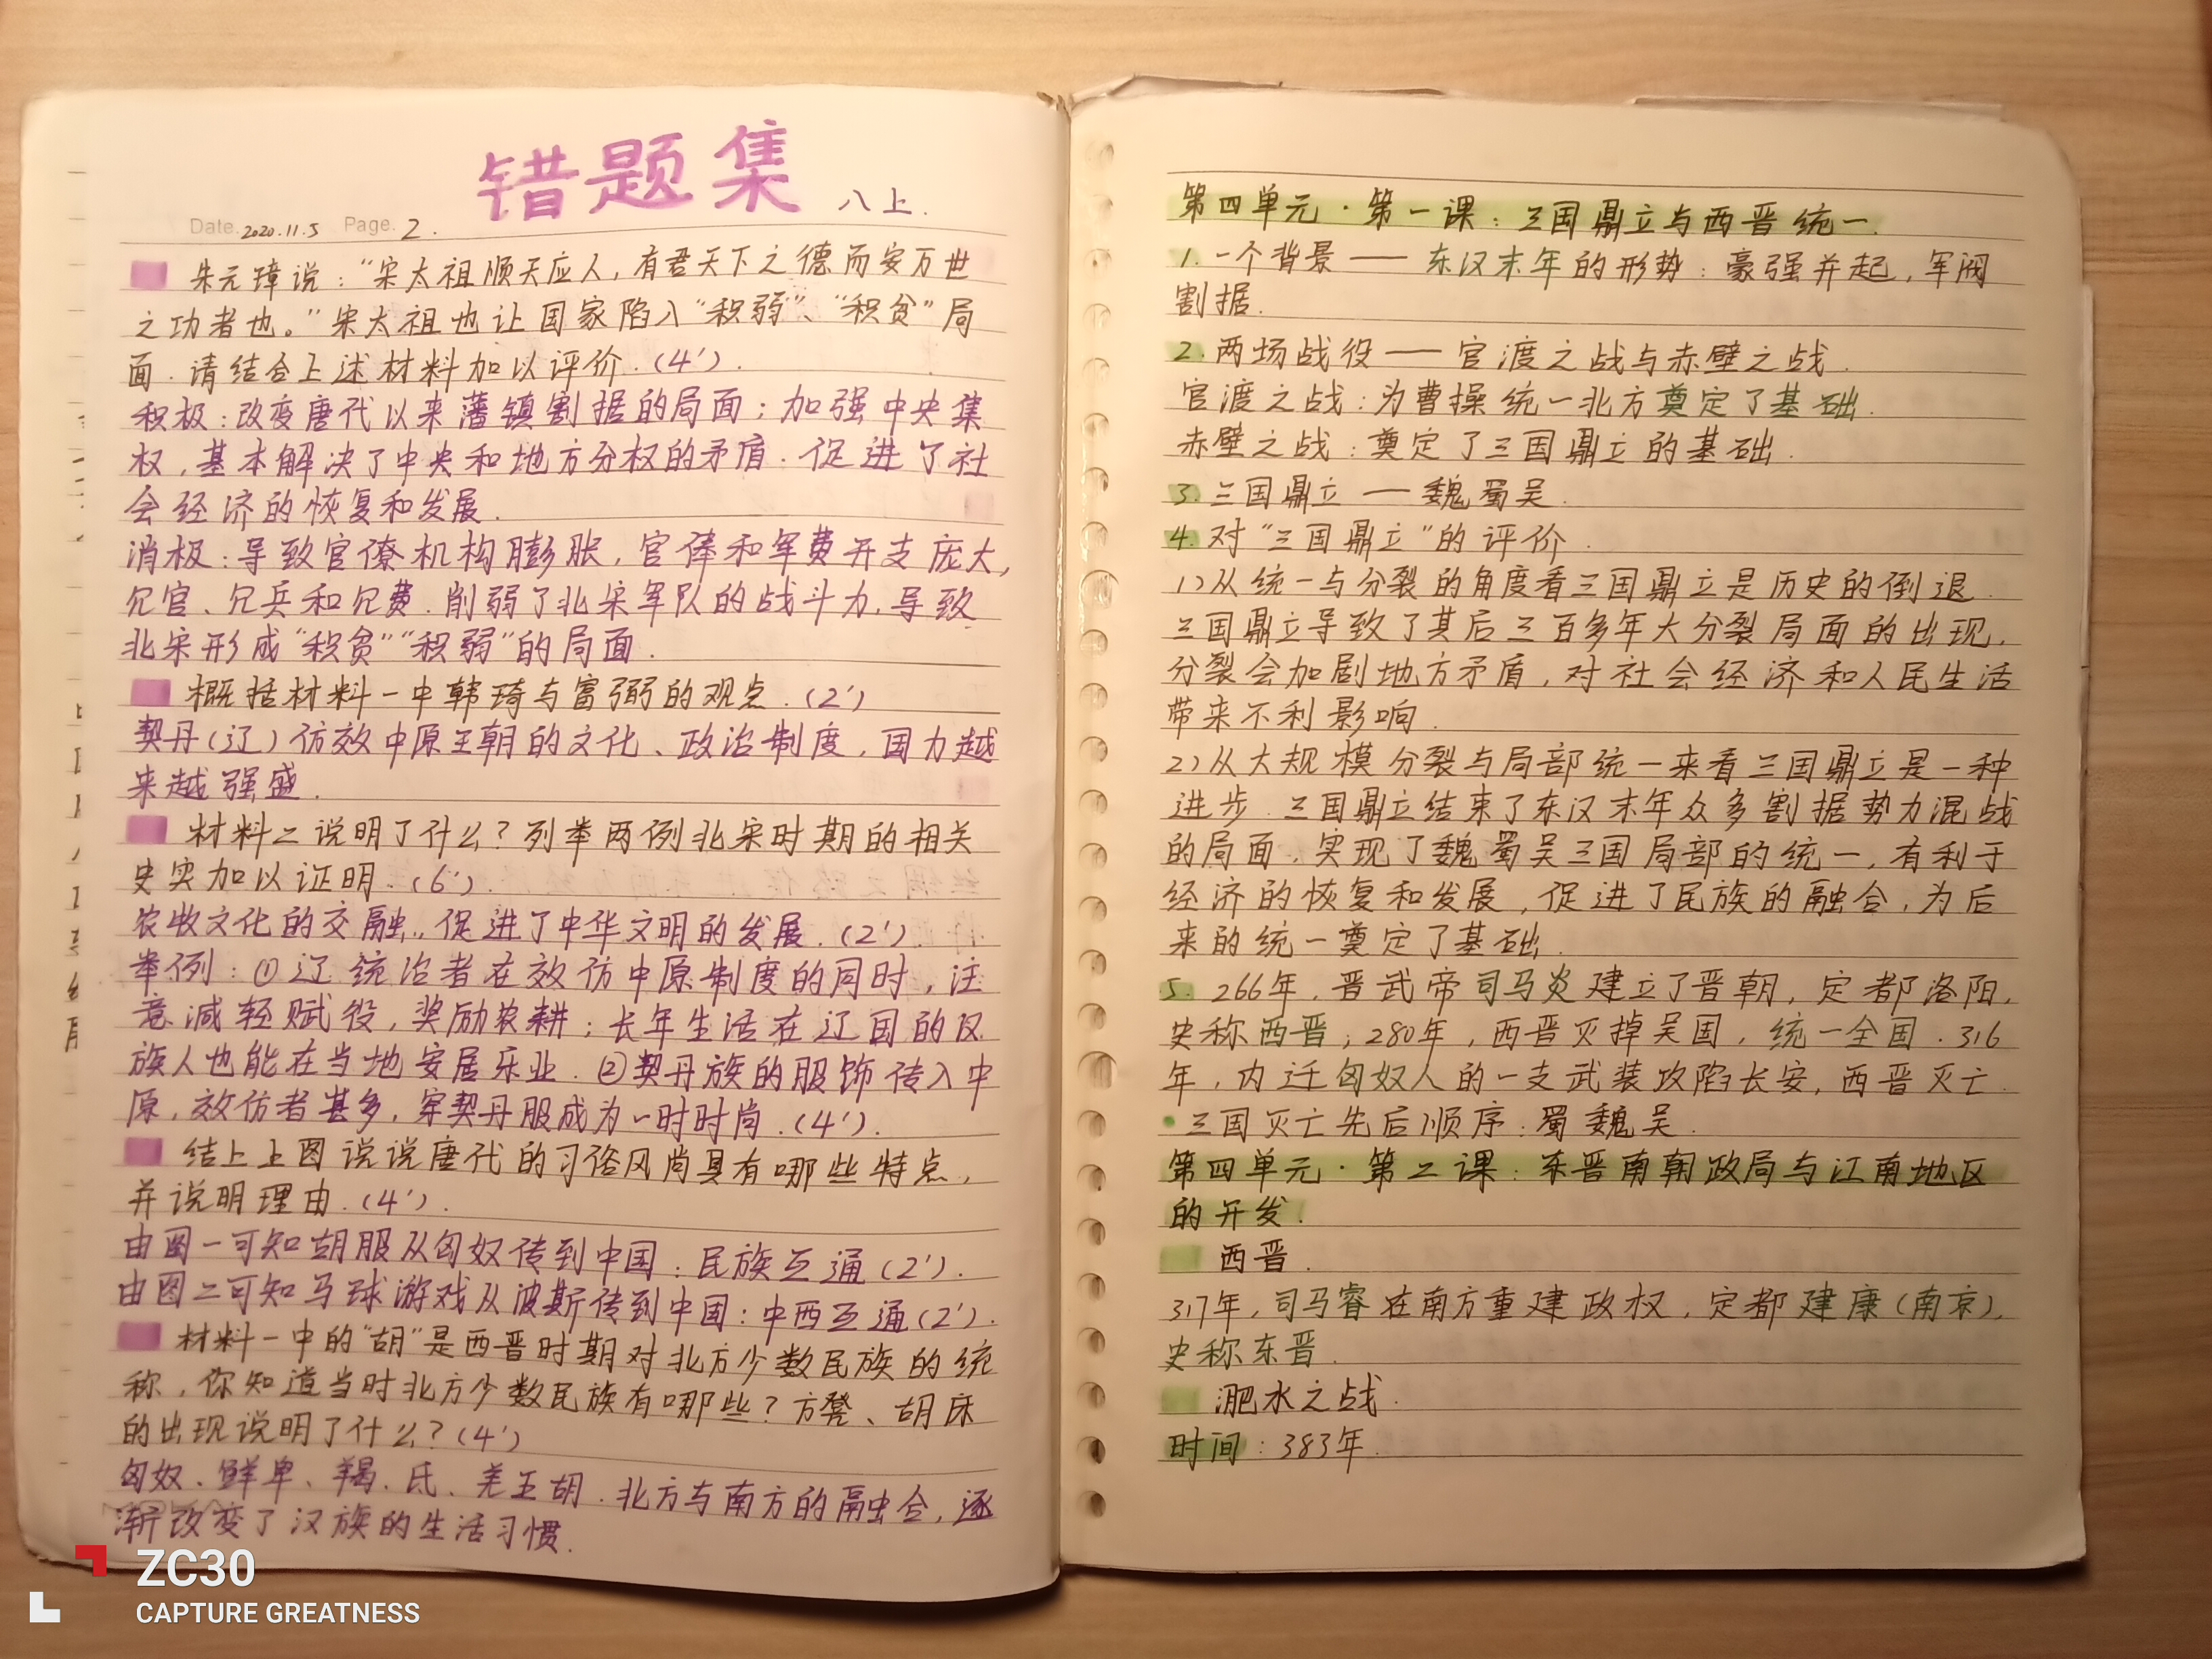 错题集 八上.
Date. 2020.11.5 Page. 2.
朱元璋说：“宋太祖顺天应人，有君天下之德而安万世
之功者也。”宋太祖也让国家陷入“积弱”、“积贫”局
面.请结合上述材料加以评价.(4').
积极：改变唐代以来藩镇割据的局面；加强中央集
权，基本解决了中央和地方分权的矛盾.促进了社
会经济的恢复和发展.
消极：导致官僚机构膨胀，官俸和军费开支庞大，
冗官、冗兵和冗费.削弱了北宋军队的战斗力.导致
北宋形成“积贫”“积弱”的局面.
概括材料一中韩琦与富弼的观点.(2')
契丹(辽)仿效中原王朝的文化、政治制度，国力越
来越强盛.
材料二说明了什么？列举两例北宋时期的相关
史实加以证明.(6').
农牧文化的交融，促进了中华文明的发展.(2').
举例：①辽统治者在效仿中原制度的同时，注
意减轻赋役，奖励农耕；长年生活在辽国的汉
族人也能在当地安居乐业.②契丹族的服饰传入中
原，效仿者甚多，穿契丹服成为一时时尚.(4').
结上上图说说唐代的习俗风尚具有哪些特点，
并说明理由.(4').
由图一可知胡服从匈奴传到中国：民族互通(2').
由图二可知马球游戏从波斯传到中国：中西互通(2').
材料一中的“胡”是西晋时期对北方少数民族的统
称，你知道当时北方少数民族有哪些？方凳、胡床
的出现说明了什么？(4')
匈奴、鲜卑、羯、氐、羌五胡.北方与南方的融合，逐
渐改变了汉族的生活习惯.
第四单元·第一课：三国鼎立与西晋统一.
1.一个背景——东汉末年的形势：豪强并起，军阀
割据.
2.两场战役——官渡之战与赤壁之战.
官渡之战：为曹操统一北方奠定了基础.
赤壁之战：奠定了三国鼎立的基础.
3.三国鼎立——魏蜀吴.
4.对“三国鼎立”的评价.
1)从统一与分裂的角度看三国鼎立是历史的倒退.
三国鼎立导致了其后三百多年大分裂局面的出现，
分裂会加剧地方矛盾，对社会经济和人民生活
带来不利影响.
2)从大规模分裂与局部统一来看三国鼎立是一种
进步.三国鼎立结束了东汉末年众多割据势力混战
的局面，实现了魏蜀吴三国局部的统一，有利于
经济的恢复和发展，促进了民族的融合，为后
来的统一奠定了基础.
5.266年，晋武帝司马炎建立了晋朝，定都洛阳，
史称西晋；280年，西晋灭掉吴国，统一全国.316
年，内迁匈奴人的一支武装攻陷长安，西晋灭亡.
·三国灭亡先后顺序：蜀魏吴.
第四单元·第二课：东晋南朝政局与江南地区
的开发.
西晋.
317年，司马睿在南方重建政权，定都建康(南京)，
史称东晋.
淝水之战.
时间：383年.
ZC30
CAPTURE GREATNESS